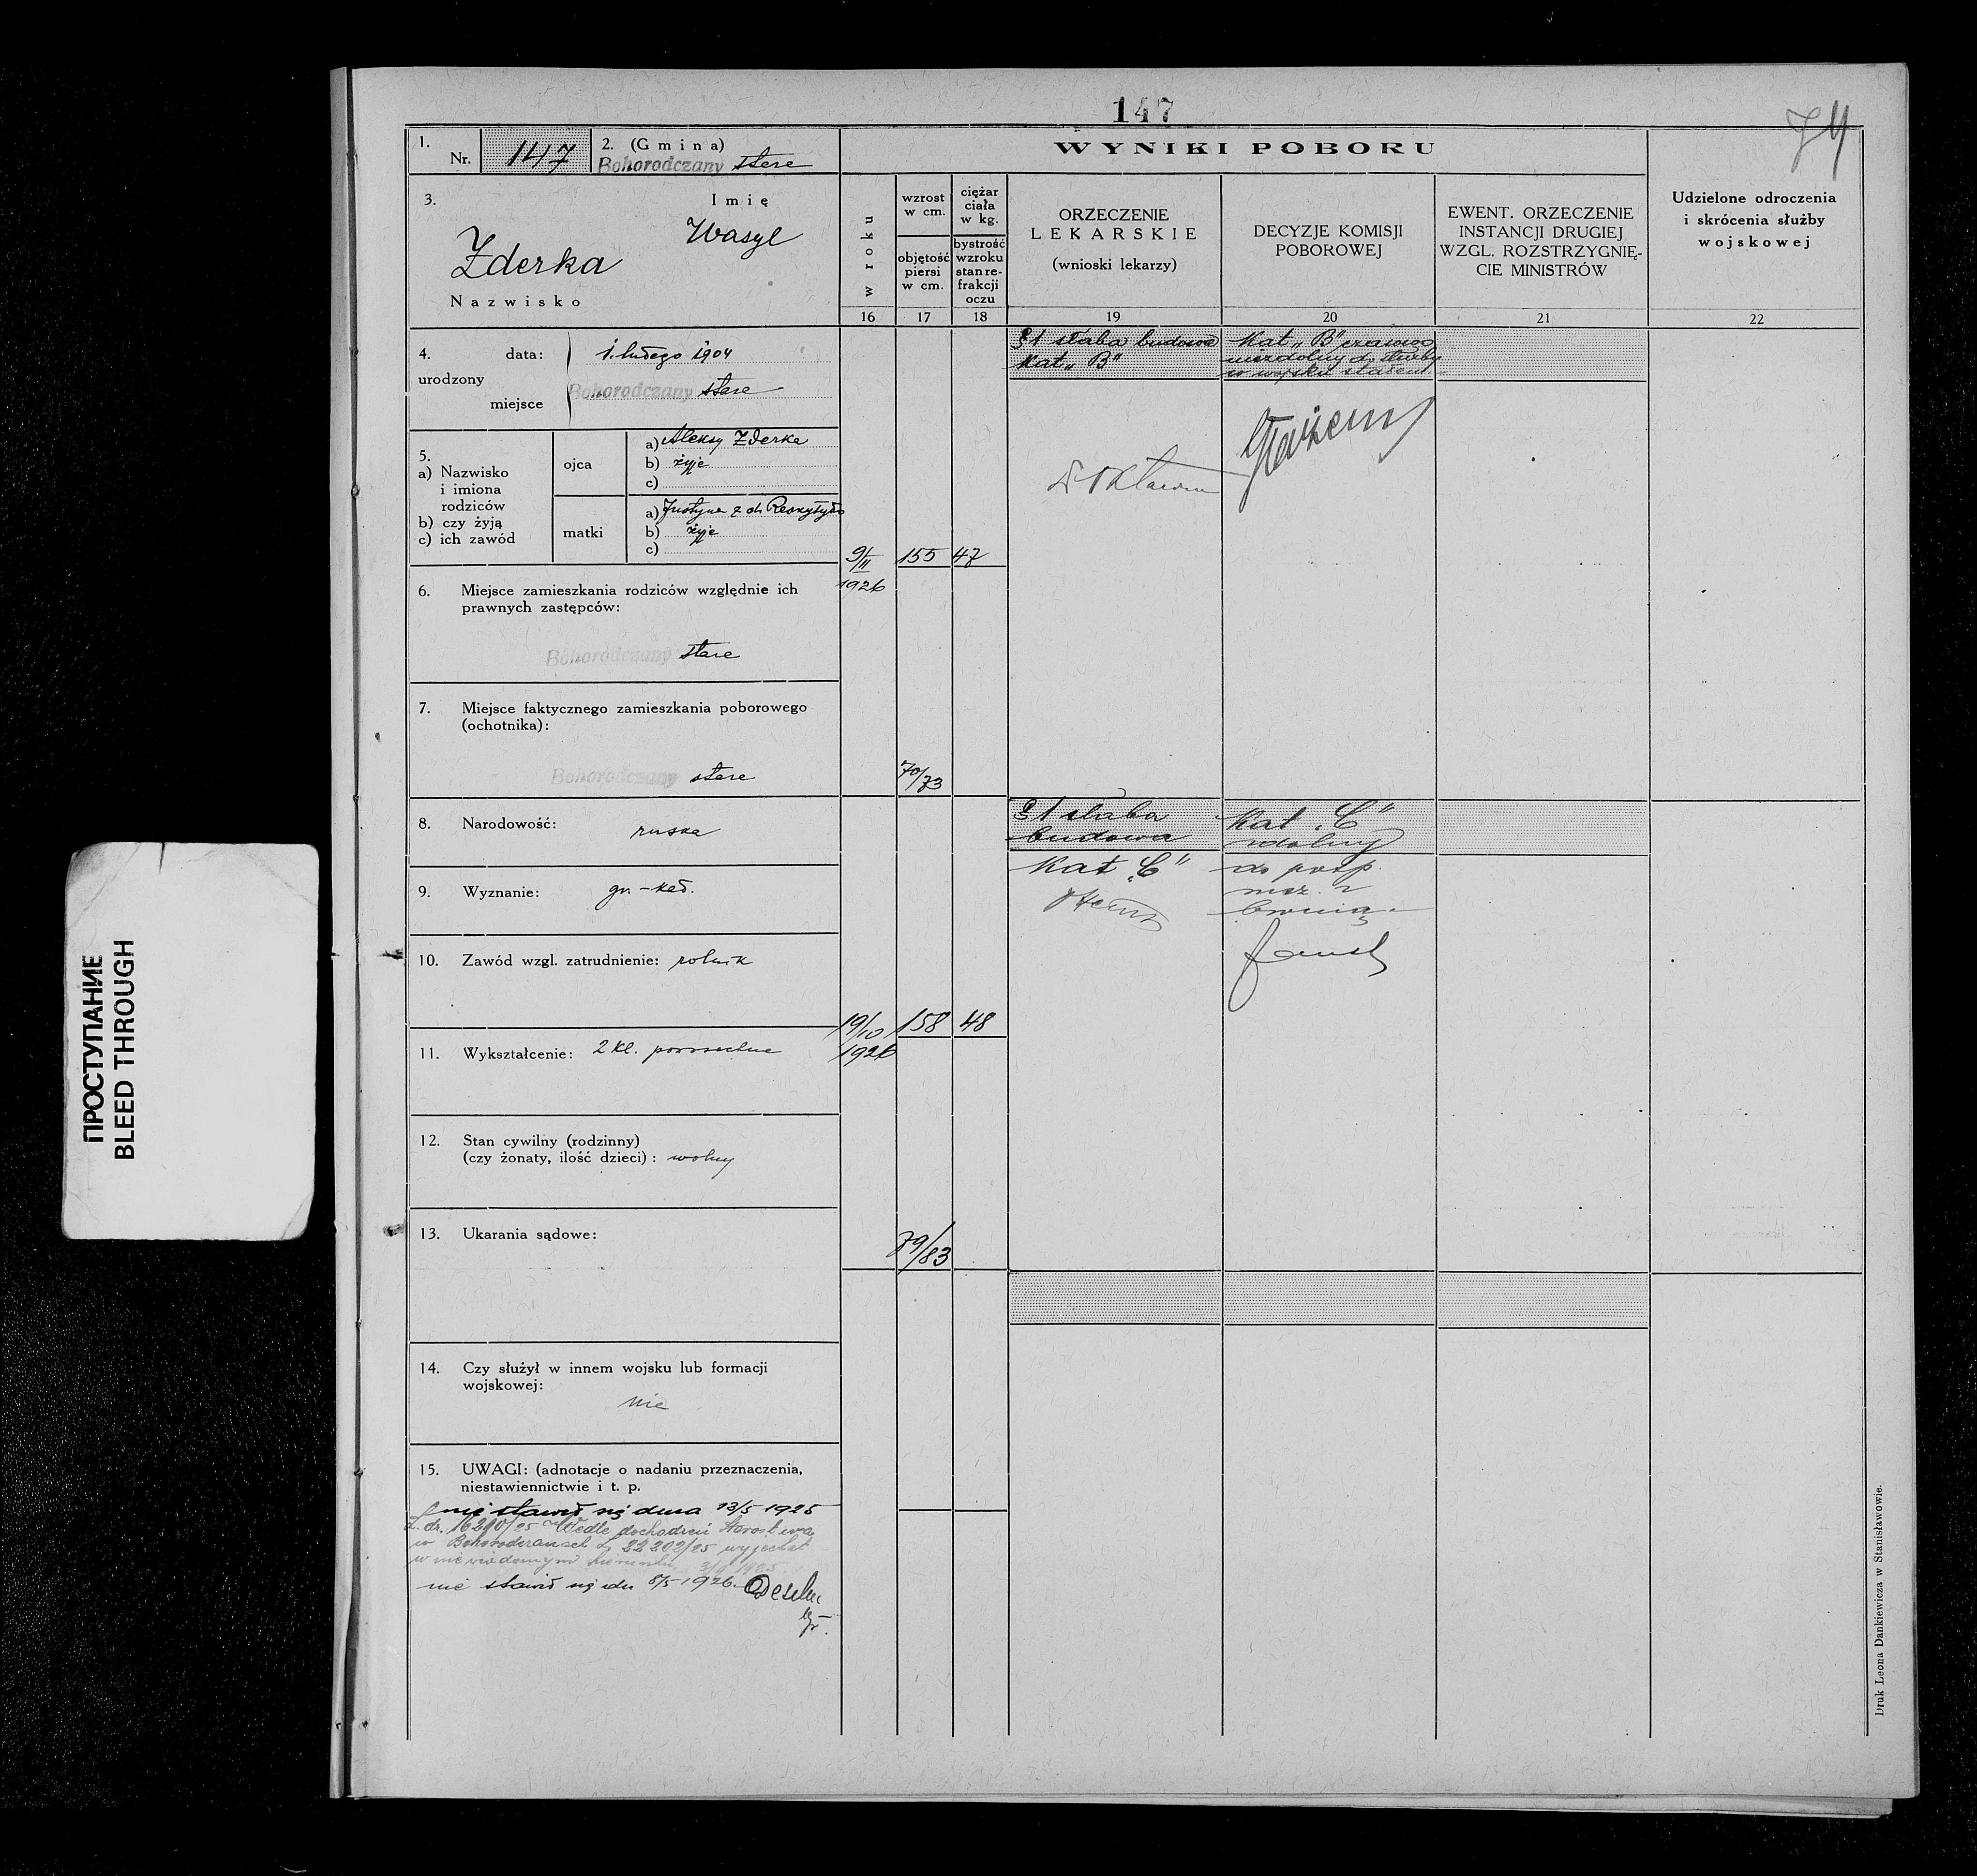 147
74
1.
Nr. 147
2. (Gmina)
Bohorodczany stare
WYNIKI POBORU
3.
Imię
Wasyl
Zderka
Nazwisko
w roku
wzrost
w cm.
objętość
piersi
w cm.
ciężar
ciała
w kg.
bystrość
wzroku
stan re-
frakcji
oczu
ORZECZENIE
LEKARSKIE
(wnioski lekarzy)
DECYZJE KOMISJI
POBOROWEJ
EWENT. ORZECZENIE
INSTANCJI DRUGIEJ
WZGL. ROZSTRZYGNIĘ-
CIE MINISTRÓW
Udzielone odroczenia
i skrócenia służby
wojskowej
16 17 18 19 20 21 22
4. data: 1. lutego 1904
urodzony
miejsce Bohorodczany stare
5.
a) Nazwisko
i imiona
rodziców
b) czy żyją
c) ich zawód
ojca
a) Aleksy Zderka
b) żyje
c)
matki
a) Justyna z d.
b) żyje
c)
6. Miejsce zamieszkania rodziców względnie ich
prawnych zastępców:
Bohorodczany stare
7. Miejsce faktycznego zamieszkania poborowego
(ochotnika):
Bohorodczany stare
8. Narodowość: ruska
9. Wyznanie: gr.-kat.
10. Zawód wzgl. zatrudnienie: rolnik
11. Wykształcenie: 2 kl. powszechne
12. Stan cywilny (rodzinny)
(czy żonaty, ilość dzieci): wolny
13. Ukarania sądowe:
14. Czy służył w innem wojsku lub formacji
wojskowej:
nie
15. UWAGI: (adnotacje o nadaniu przeznaczenia,
niestawiennictwie i t. p.
nie stawił się dnia 13/5 1925
L. dz. 16210/25 Wedle dochodzeń Starostwa
w Bohorodczanach L 22202/25 wyjechał
w niewiadomym kierunku
nie stawił się dn 8/5 1926
9/II 155 47
1926
70/73
§1 słaba budowa
Kat „B"
Kat „B" czasowo
niezdolny do służby
w wojsku stałem
19/10 158 48
1926
79/83
§1 słaba
budowa
Kat „C"
Kat „C"
zdolny
do posp.
rusz. z
bronią
Druk Leona Dankiewicza w Stanisławowie.
ПРОСТУПАНИЕ
BLEED THROUGH